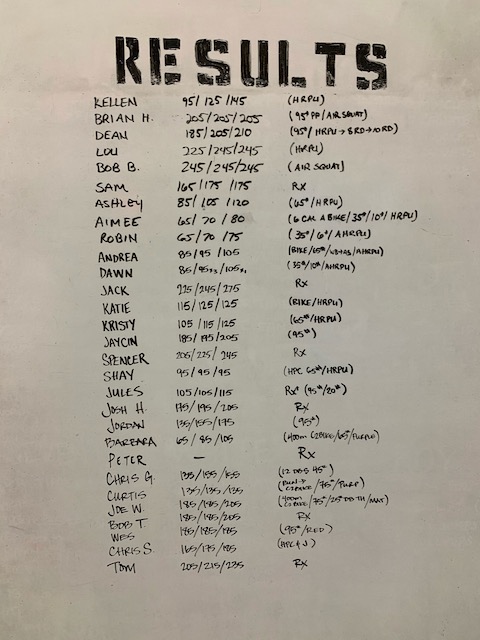 RESULTS
KELLEN 95/125/145 (HRPU)
BRIAN H. 205/205/205 (95# PP/AIR SQUAT)
DEAN 185/205/210 (95#/HRPU→8RD→10RD)
LOU 225/245/245 (HRPU)
BOB B. 245/245/245 (AIR SQUAT)
SAM 165/175/175 RX
ASHLEY 85/105/120 (65#/HRPU)
AIMEE 65/70/80 (6 CAL A BIKE/35#/10#/HRPU)
ROBIN 65/70/75 (35#/6#/AHRPU)
ANDREA 85/95/105 (BIKE/65#/AHRPU)
DAWN 85/95/105 (35#/10#/AHRPU)
JACK 225/245/275 RX
KATIE 115/125/125 (BIKE/HRPU)
KRISTY 105/115/125 (65#/HRPU)
JAYCIN 185/195/205 (95#)
SPENCER 205/225/245 RX
SHAY 95/95/95 (HPC 65#/HRPU)
JULES 105/105/115 RX+ (95#/20#)
JOSH H. 175/195/205 RX
JORDAN 135/155/175 (95#)
BARBARA 65/95/105 (400m C2BIKE/65#/PURPLE)
PETER – RX
CHRIS G. 135/155/155 (12 DBS 45#)
CURTIS 135/135/135 (RUN→C2BIKE/75#/PURP)
JOE W. 185/195/205 (400m C2BIKE/75#/25#DB TH/MAX)
BOB T. 185/185/205 RX
WES 185/185/185 (95#/RED)
CHRIS S. 165/175/185 (HPC+J)
TOM 205/215/225 RX